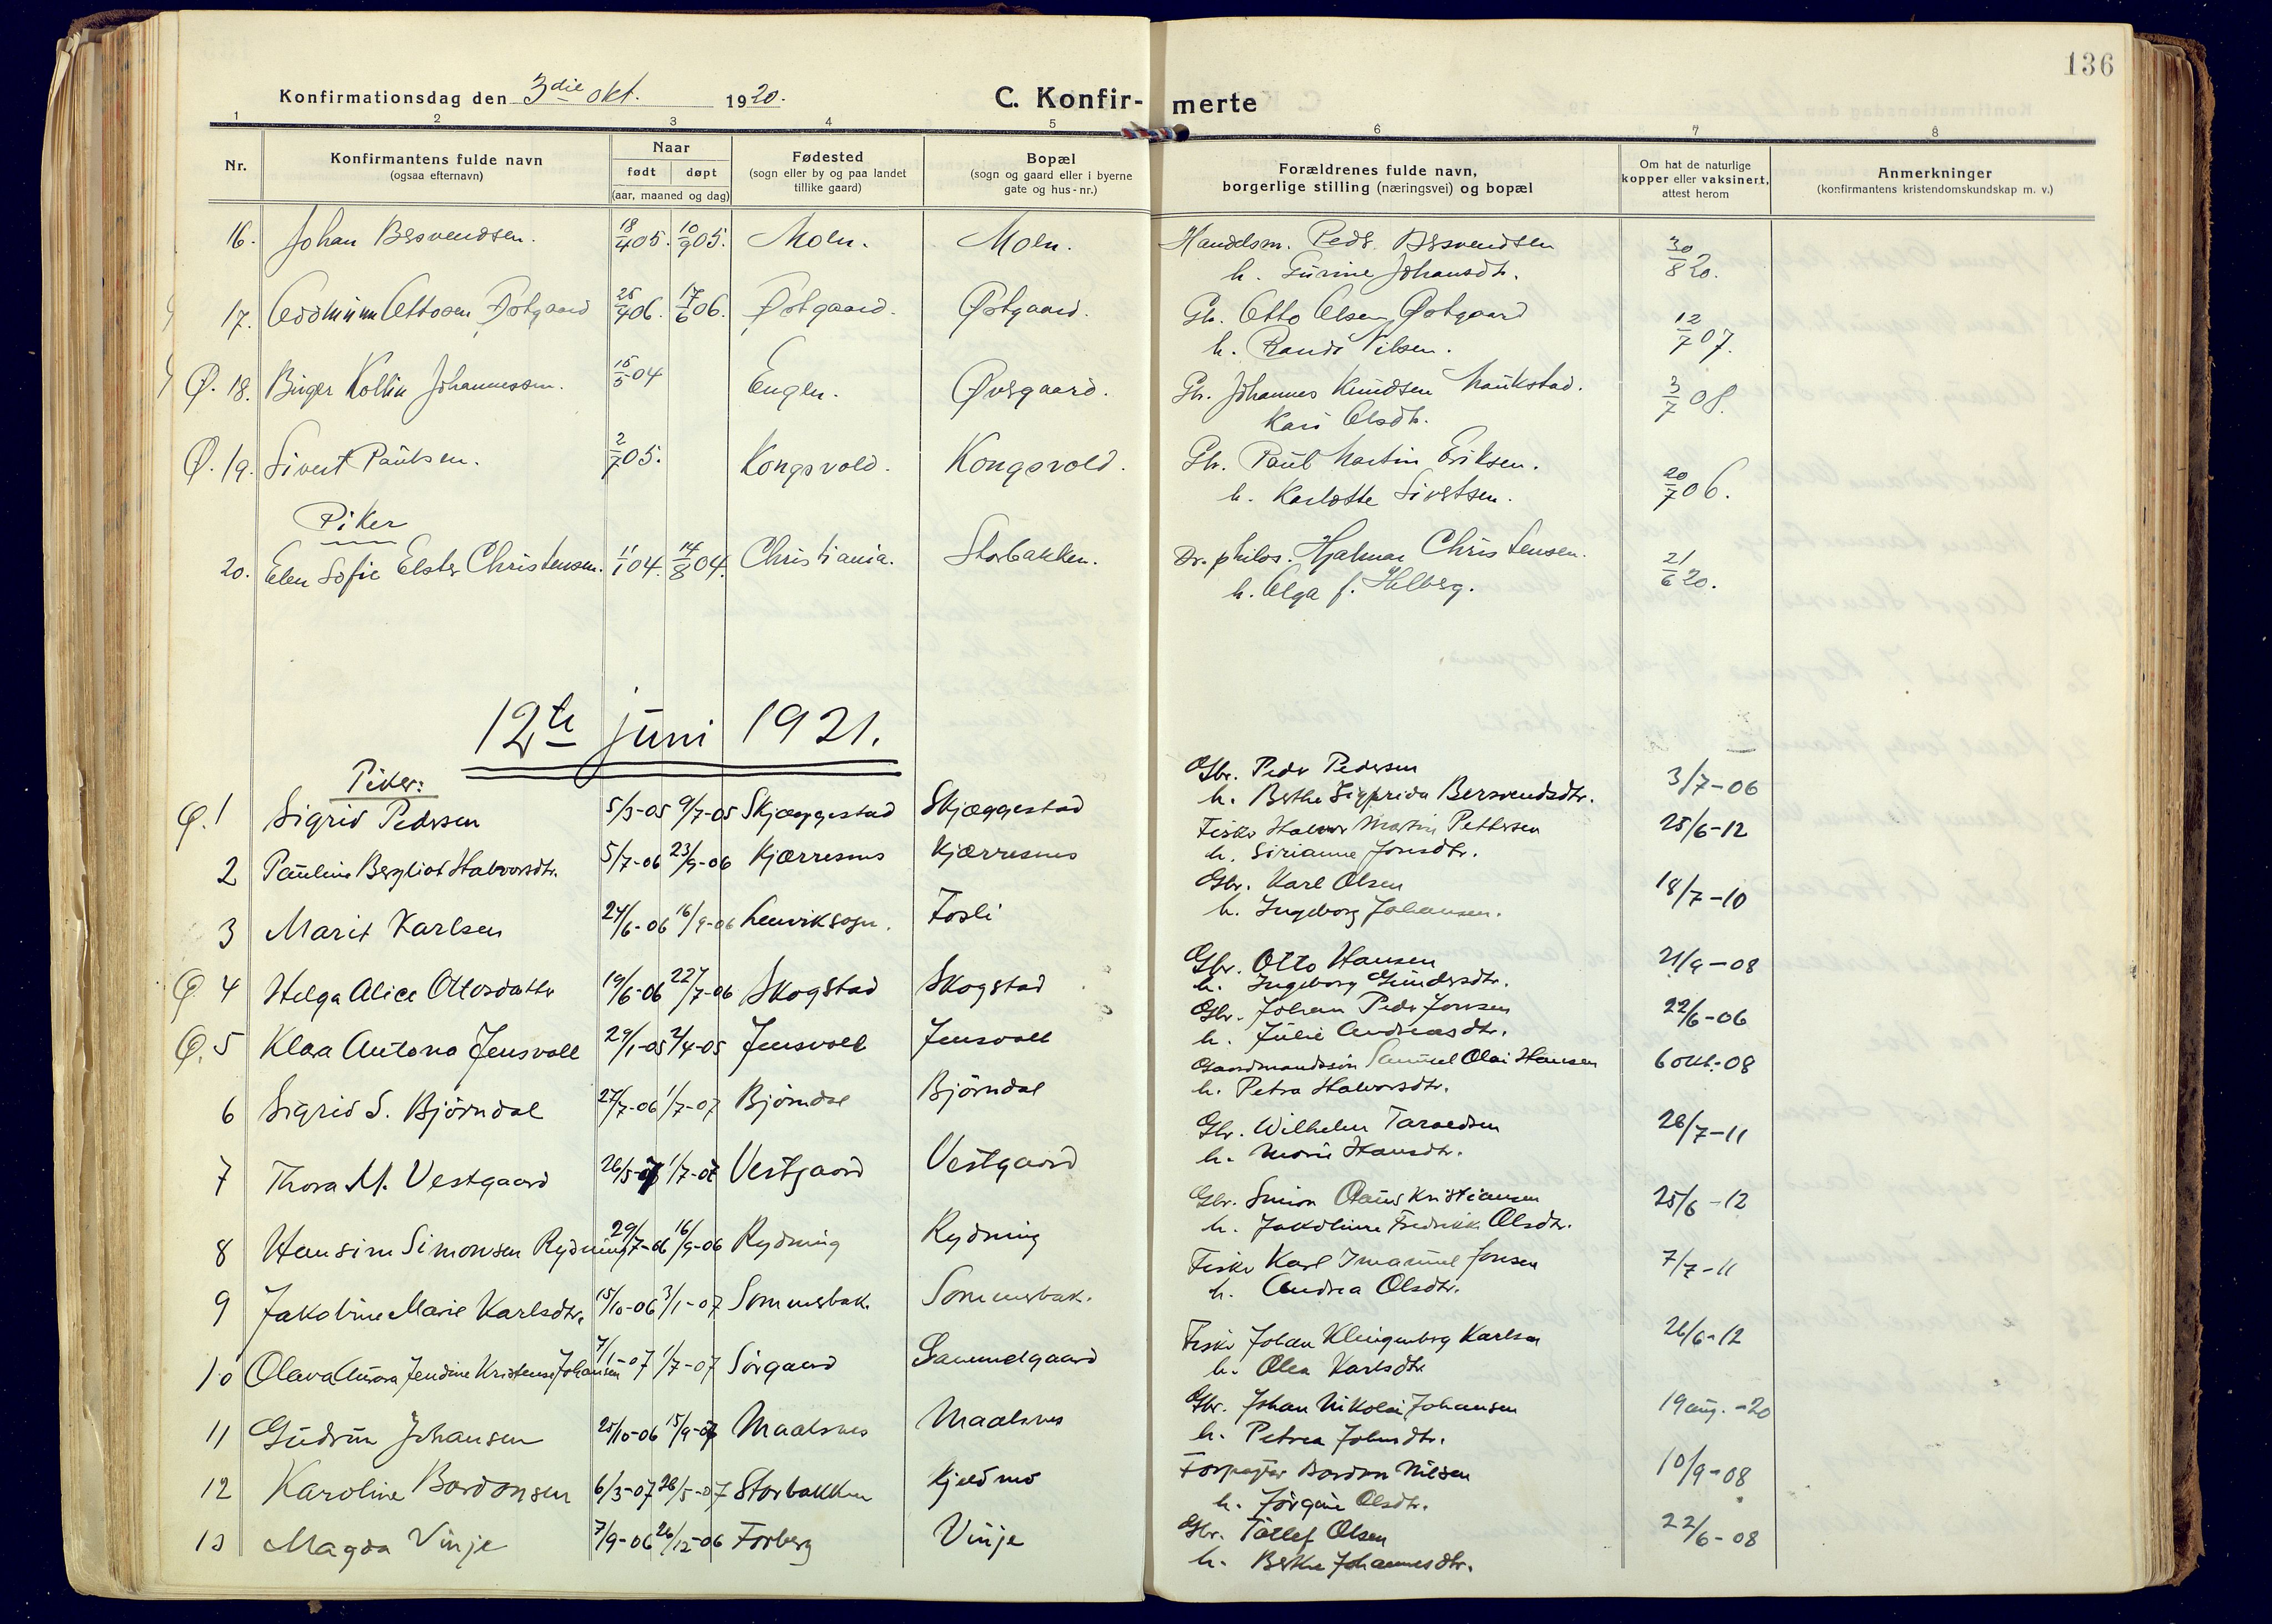 136
Konfirmationsdag den 3die okt. 1920.
C. Konfirmerte
1 2 3 4 5 6 7 8
Nr.
Konfirmantens fulde navn
(ogsaa efternavn)
Naar
født døpt
(aar, maaned og dag)
Fødested
(sogn eller by og paa landet
tillike gaard)
Bopæl
(sogn og gaard eller i byerne
gate og hus-nr.)
Forældrenes fulde navn,
borgerlige stilling (næringsvei) og bopæl
Om hat de naturlige
kopper eller vaksinert,
attest herom
Anmerkninger
(konfirmantens kristendomskundskap m. v.)
16. Johan Bersvendsen. 18/4 05. 10/9 05. Moln. Moln. Handelsm. Peder Bersvendsen 30/8 20.
h. Gurine Johansdtr.
17. Oddmun Ottosen Østgaard 25/4 06. 17/6 06. Østgaard. Østgaard. Gbr. Otto Olsen Østgaard 12/7 07.
h. Randi Nilsen.
Ø. 18. Birger Kollin Johannessen. 15/5 04 Engln. Øvergaard. Gbr. Johannes Knudsen Maukstad. 3/7 08.
Kari Olsdtr.
Ø. 19. Sivert Paulsen. 2/7 05. Kongsvold. Kongsvold. Gbr. Paul Martin Eriksen. 20/7 06.
h. Karlotte Sivertsen.
Piker
20. Elen Sofie Elster Christensen. 11/1 04. 14/8 04. Christiania. Storbakken. Dr. philos. Hjalmar Christensen. 21/6 20.
h. Olga f. Helberg.
12te juni 1921.
Piker:
Ø. 1 Sigrid Pedersen 5/3-05 9/7-05 Skjæggestad Skjæggestad Gbr. Peder Pedersen 3/7-06
h. Berthe Sigfrida Bersvendsdtr.
2 Pauline Bergliot Halvorsdtr. 5/7-06 23/9-06 Kjærresnes Kjærresnes Fisker Halvor Martin Pettersen 25/6-12
h. Sirianne Jonsdtr.
3 Marit Karlsen 24/6-06 16/9-06 Lenviksogn. Fosli Gbr. Karl Olsen 18/7-10
h. Ingeborg Johansen.
Ø 4 Helga Alice Ottosdatter 19/6-06 22/7-06 Skogstad Skogstad Gbr. Otto Hansen 21/9-08
h. Ingeborg Gundersdtr.
Ø. 5 Klaa Antona Jensvoll 29/1-05 2/4-05 Jensvoll Jensvoll Gbr. Johan Peder Jonsen 22/6-06
h. Julie Andreasdtr.
6 Sigrid S. Bjørndal 27/7-06 1/7-07 Bjørndal Bjørndal Gaardmandssøn Samuel Olai Hansen 6 okt.-08
h. Petra Halvorsdtr.
7 Thora M. Vestgaard 26/5-07 1/7-07 Vestgaard Vestgaard Gbr. Wilhelm Taraldsen 26/7-11
h. Marie Hansdtr.
8 Hansine Simonsen Rydning 29/7-06 16/9-06 Rydning Rydning Gbr. Simon Olaus Kristiansen 25/6-12
h. Jakobine Fredrikk. Olsdtr.
9 Jakobine Marie Karlsdtr. 15/10-06 3/1-07 Sommerbak. Sommerbak. Fisker Karl Imanuel Jonsen 7/7-11
h. Andrea Olsdtr.
10 Olava Aurora Jendine Kristense Johansen 7/1-07 1/7-07 Sørgaard Samuelgaard Fisker Johan Klingenberg Karlsen 26/6-12
h. Olea Karlsdtr.
11 Gudrun Johansen 25/10-06 15/9-07 Maalsnes Maalsnes Gbr. Johan Nikolai Johansen 19 aug.-20
h. Petrea Johnsdtr.
12 Karoline Bardonsen 6/3-07 26/5-07 Storbakken Kjeldmo Forpagter Bardon Nilsen 10/9-08
h. Jørgine Olsdtr.
13 Magda Vinje 7/9-06 26/12-06 Forberg Vinje Gbr. Tollef Olsen 22/6-08
h. Berthe Johannesdtr.